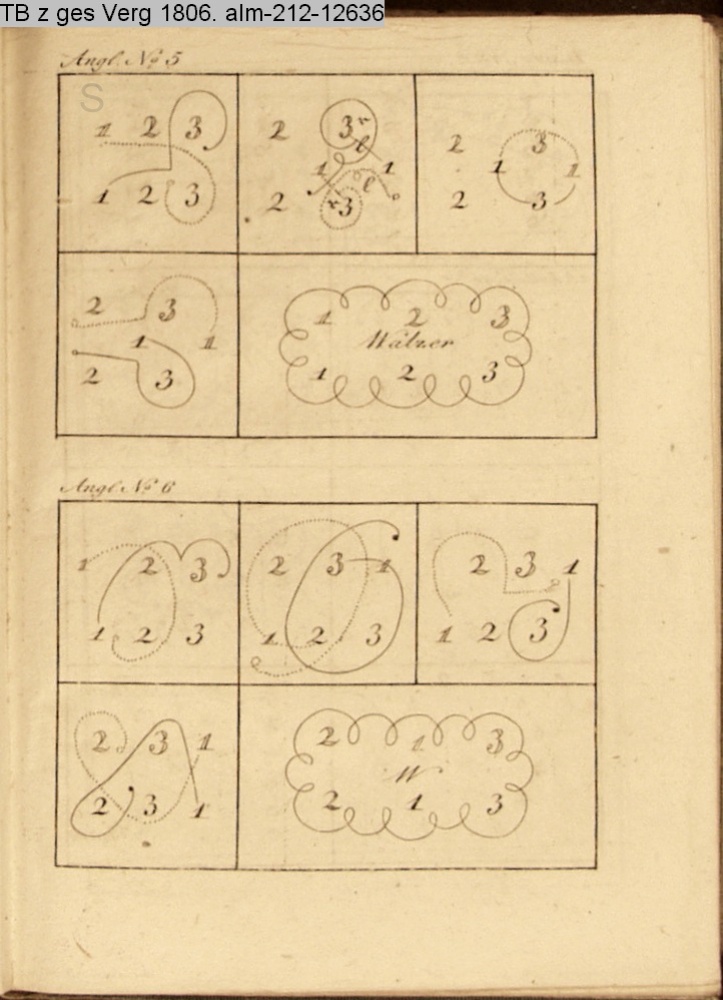 TB z ges Verg 1806. alm-212-12636
Angl. No 5
S
1 2 3
1 2 3
2 3 r
l
1 1
l
2 r 3
2 3
1 1
2 3
2 3
1 1
2 3
1 2 3
Walzer
1 2 3
Angl. No 6
1 2 3
1 2 3
2 3 1
1 2 3
2 3 1
1 2 3
2 3 1
2 3 1
2 1 3
W
2 1 3